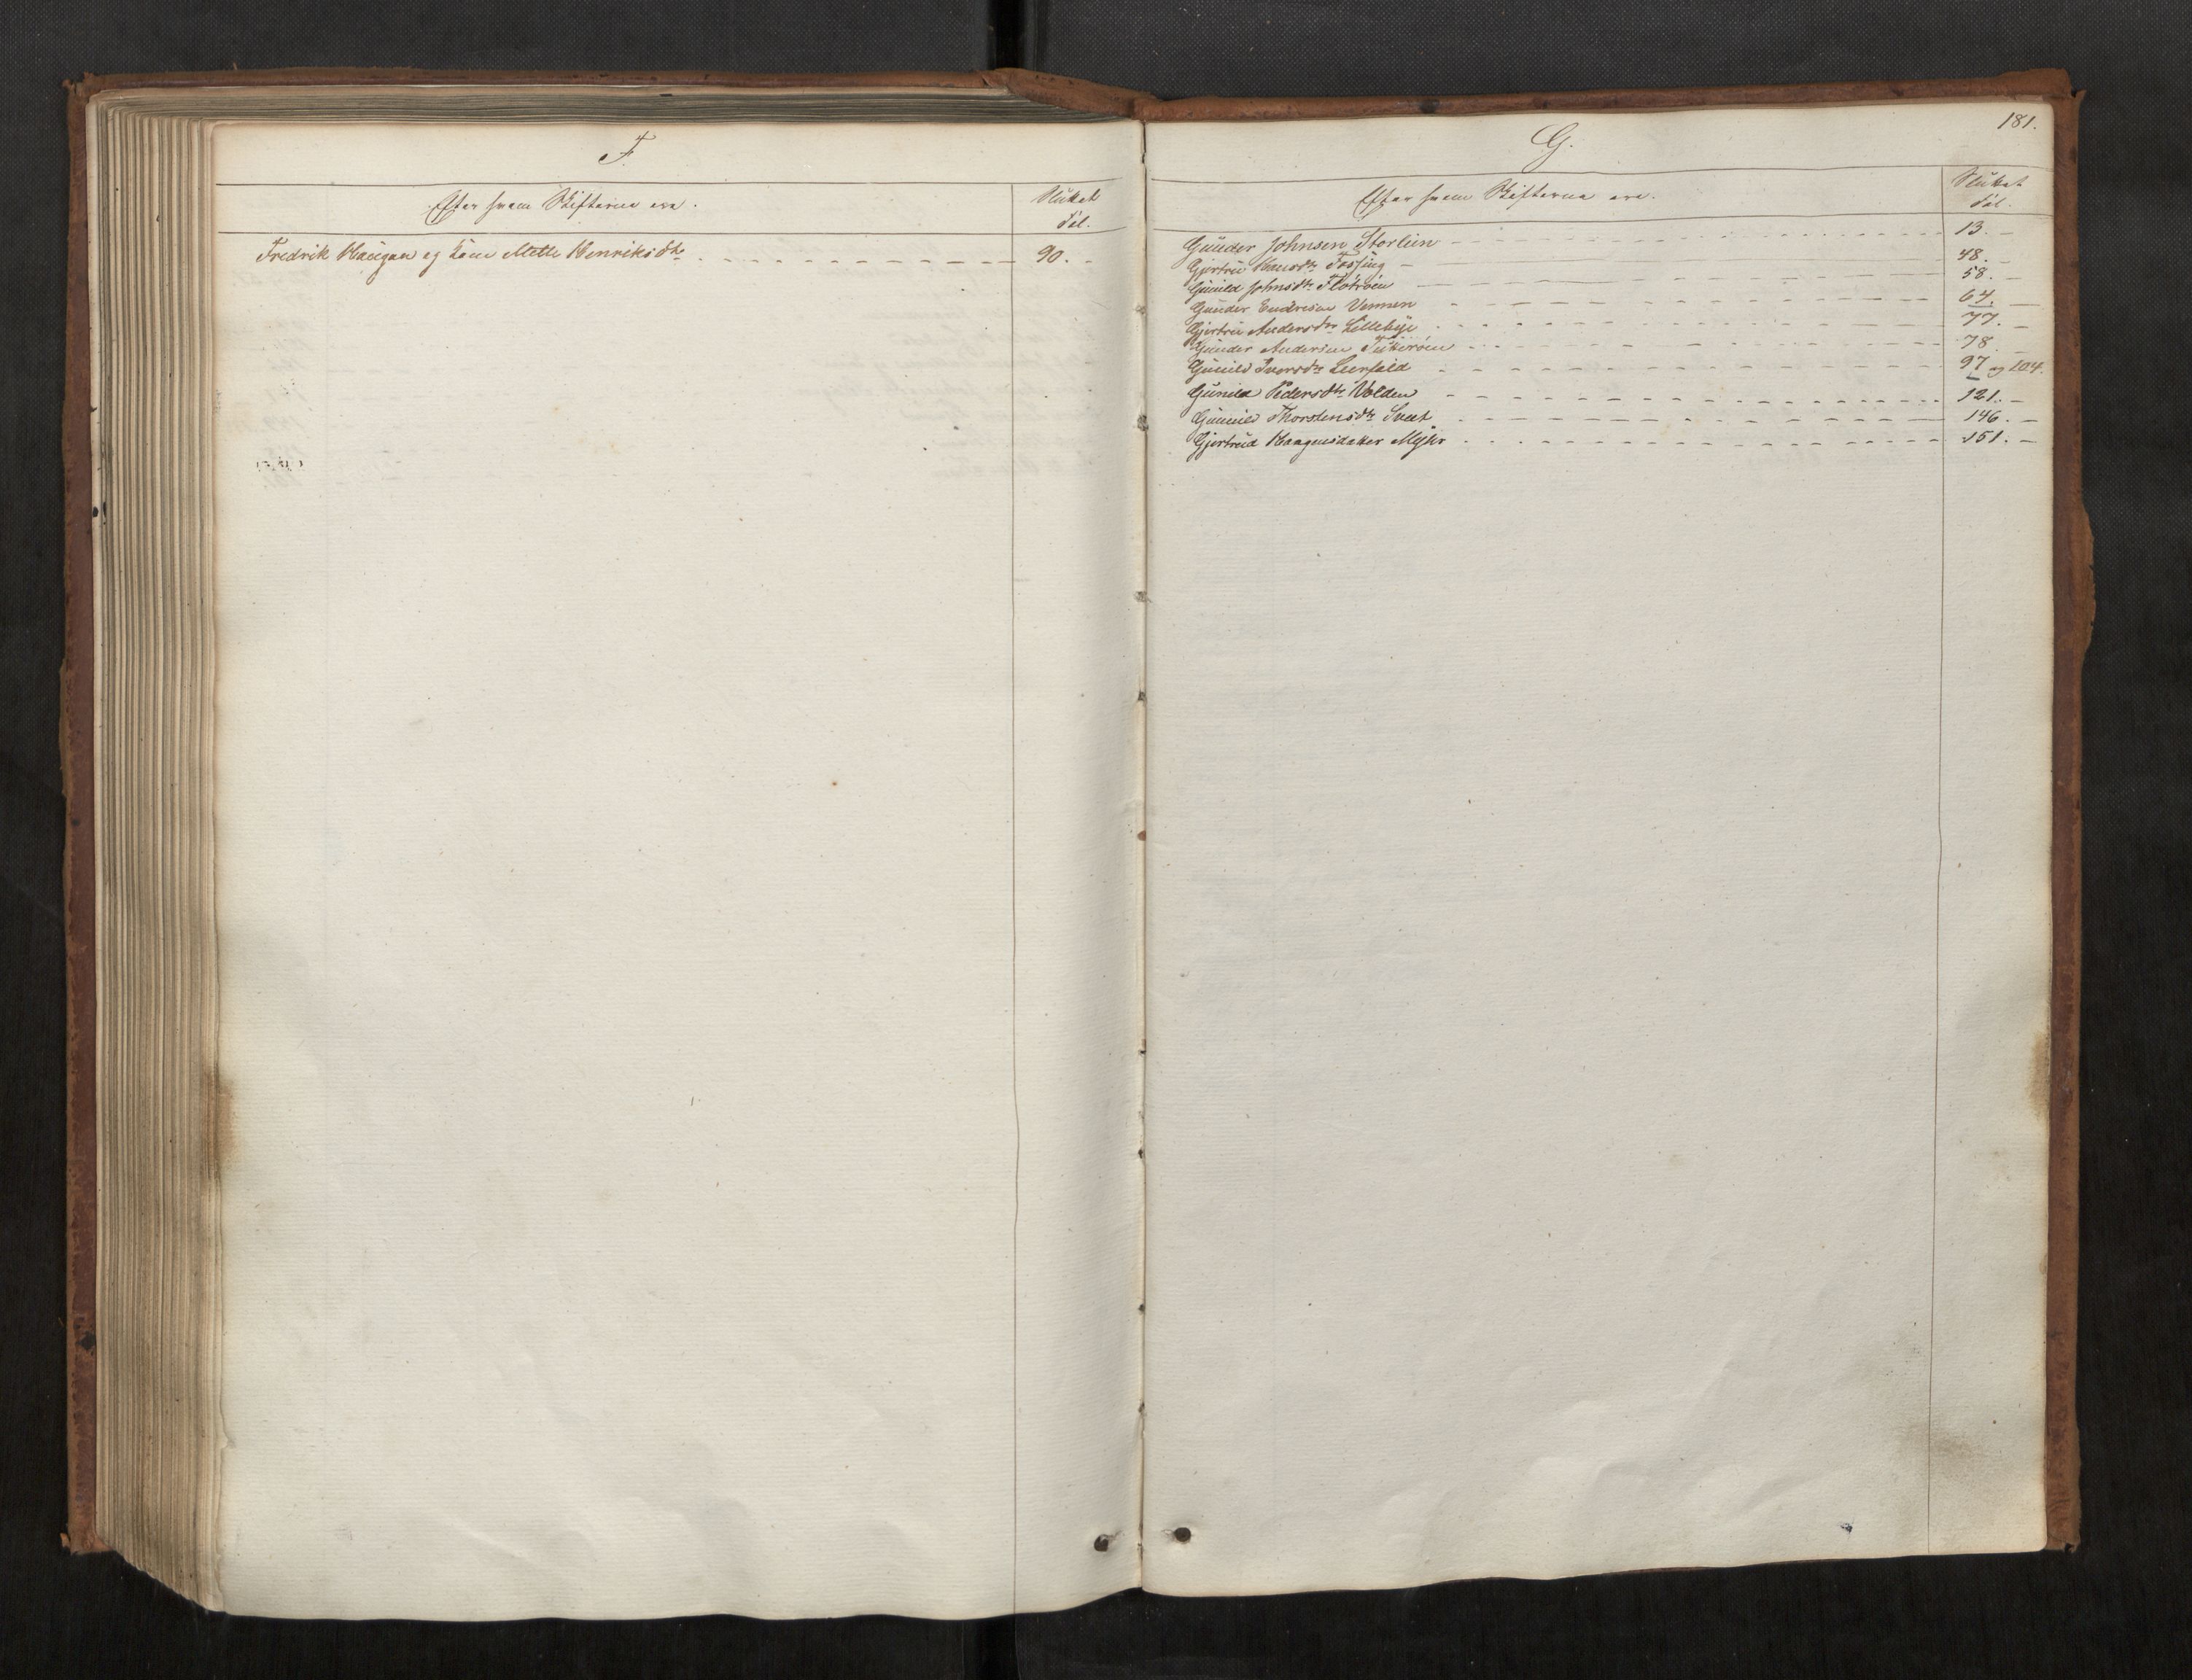 F
Efter hvem Skifterne ere.
Sluttet
Fol.
Fredrik Haugan og Kone Mette Henriksdtr 90.
181.
G.
Efter hvem Skifterne ere.
Sluttet
Fol.
Gunder Johnsen Storlien 13.
Gjertru Hansdtr Fossing 48.
Gunild Johnsdtr Flotroen 58.
Gunder Endresen Vennen 64.
Gjertru Andersdtr Lillebye 77.
Gunder Andersen 78
Gunild Iversdtr Leerfald 97 og 104.
Gunild Pedersdtr Volden 121.
Gunnild Thorstensdtr 146.
Gjertrud Haagensdatter Myhr 151.